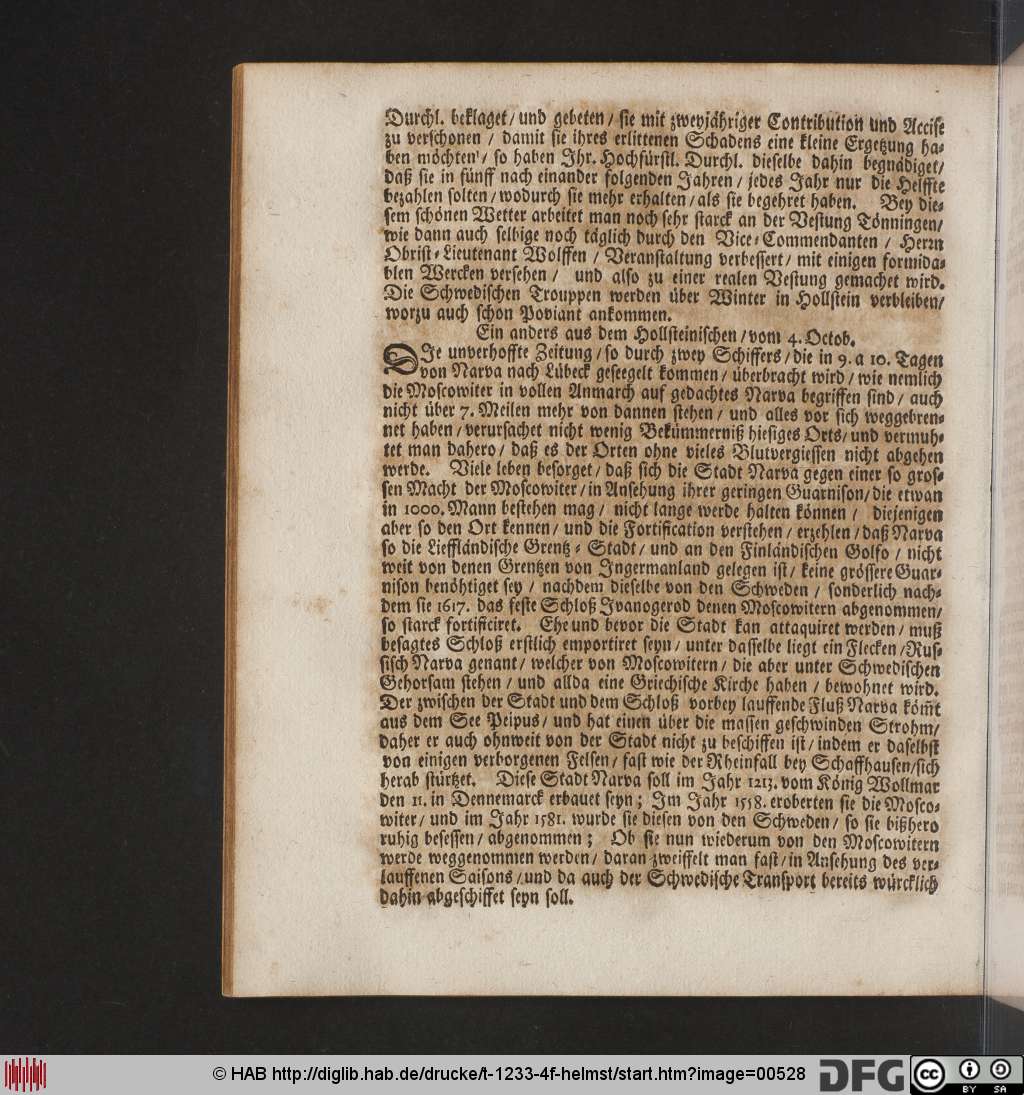 Durchl. beklaget / und gebeten / sie mit zweyjähriger Contribution und Accise
zu verschonen / damit sie ihres erlittenen Schadens eine kleine Ergetzung ha-
ben möchten / so haben Ihr. Hochfürstl. Durchl. dieselbe dahin begnädiget/
daß sie in fünff nach einander folgenden Jahren / jedes Jahr nur die Helffte
bezahlen solten / wodurch sie mehr erhalten / als sie begehret haben. Bey die-
sem schönen Wetter arbeitet man noch sehr starck an der Vestung Tönningen/
wie dann auch selbige noch täglich durch den Vice-Commendanten / Herrn
Obrist-Lieutenant Wolffen / Veranstaltung verbessert / mit einigen formida-
blen Wercken versehen / und also zu einer realen Vestung gemachet wird.
Die Schwedischen Trouppen werden über Winter in Hollstein verbleiben/
worzu auch schon Poviant ankommen.
Ein anders aus dem Hollsteinischen / vom 4. Octob.
DIe unverhoffte Zeitung / so durch zwey Schiffers / die in 9. a 10. Tagen
von Narva nach Lübeck geseegelt kommen / überbracht wird / wie nemlich
die Moscowiter in vollen Anmarch auf gedachtes Narva begriffen sind / auch
nicht über 7. Meilen mehr von dannen stehen / und alles vor sich weggebren-
net haben / verursachet nicht wenig Bekümmerniß hiesiges Orts / und vermuh-
tet man dahero / daß es der Orten ohne vieles Blutvergiessen nicht abgehen
werde. Viele leben besorget / daß sich die Stadt Narva gegen einer so gros-
sen Macht der Moscowiter / in Ansehung ihrer geringen Guarnison / die etwan
in 1000. Mann bestehen mag / nicht lange werde halten können / diejenigen
aber so den Ort kennen / und die Fortification verstehen / erzehlen / daß Narva
so die Liefländische Grentz-Stadt / und an den Finländischen Golfo / nicht
weit von denen Grentzen von Ingermanland gelegen ist / keine grössere Guar-
nison benöhtiget sey / nachdem dieselbe von den Schweden / sonderlich nach-
dem sie 1617. das feste Schloß Ivanogerod denen Moscowitern abgenommen/
so starck fortificiret. Ehe und bevor die Stadt kan attaquiret werden / muß
besagtes Schloß erstlich emportiret seyn / unter dasselbe liegt ein Flecken / Rus-
sisch Narva genant / welcher von Moscowitern / die aber unter Schwedischen
Gehorsam stehen / und allda eine Griechische Kirche haben / bewohnet wird.
Der zwischen der Stadt und dem Schloß vorbey lauffende Fluß Narva kom̃t
aus dem See Peipus / und hat einen über die massen geschwinden Strohm/
daher er auch ohnweit von der Stadt nicht zu beschiffen ist / indem er daselbst
von einigen verborgenen Felsen / fast wie der Rheinfall bey Schaffhausen / sich
herab stürtzet. Diese Stadt Narva soll im Jahr 1213. vom König Wollmar
den 11. in Dennemarck erbauet seyn; Im Jahr 1558. eroberten sie die Mosco-
witer / und im Jahr 1581. wurde sie diesen von den Schweden / so sie bißhero
ruhig besessen / abgenommen; Ob sie nun wiederum von den Moscowitern
werde weggenommen werden / daran zweiffelt man fast / in Ansehung des ver-
lauffenen Saisons / und da auch der Schwedische Transport bereits würcklich
dahin abgeschiffet seyn soll.
© HAB http://diglib.hab.de/drucke/t-1233-4f-helmst/start.htm?image=00528
DFG
cc BY SA